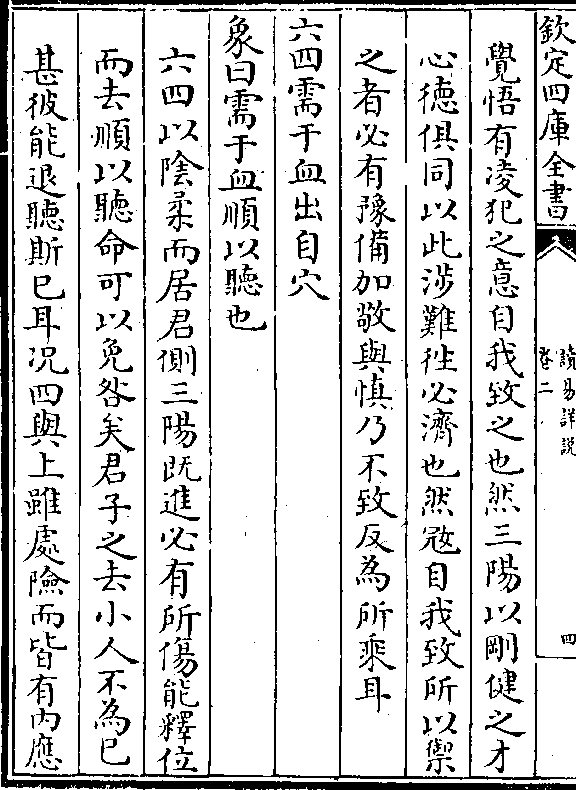 欽定四庫全書
讀易詳説
卷二
四
覺悟有凌犯之意自我致之也然三陽以剛健之才
心德俱同以此涉難徃必濟也然冦自我致所以禦
之者必有豫備加敬與慎乃不致反為所乘耳
六四需于血出自穴
象曰需于血順以聽也
六四以陰柔而居君側三陽既進必有所傷能釋位
而去順以聽命可以免咎矣君子之去小人不為已
甚彼能退聽斯已耳况四與上雖處險而皆有内應